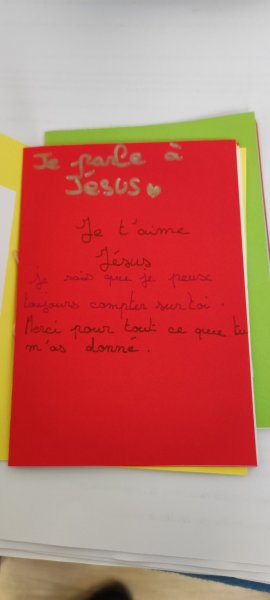 Je parle à
Jésus
Je t'aime
Jésus
je sais que je peux
toujours compter sur toi.
Merci pour tout ce que tu
m'as donné.